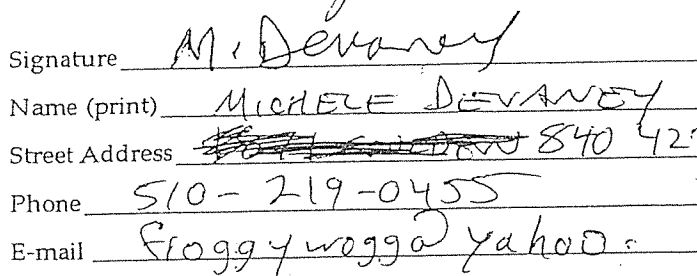 Signature M. Devaney
Name (print) MICHELE DEVANEY
Street Address 840 42
Phone 510-219-0455
E-mail froggywogg@yahoo.